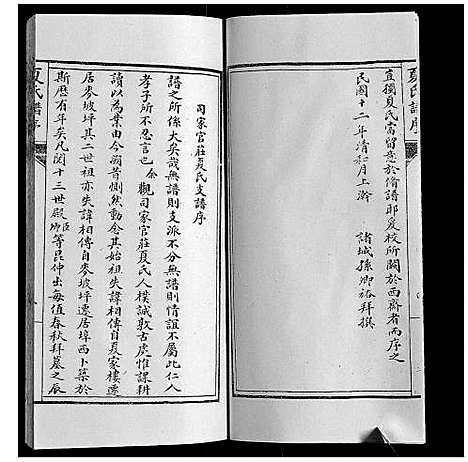 夏氏譜序
豈獨夏氏當留意於脩譜耶爰按所聞於西齋者而序之
民國十二年清和月上澣
諸城孫卿裕拜撰
夏氏譜序
司家官莊夏氏支譜序
譜之所係大矣哉無譜則支派不分無譜則情誼不屬此仁人
孝子所不忍言也余觀司家官莊夏氏人樸誠敦古處惟課耕
讀以為業由今溯昔惻然動念其始祖失諱相傳自夏家樓遷
居麥坡坪其二世祖亦失諱相傳自麥坡坪遷居埠西卜築於
斯歷有年矣凡閱十三世殿臣殿卿等昆仲出每值春秋拜墓之辰